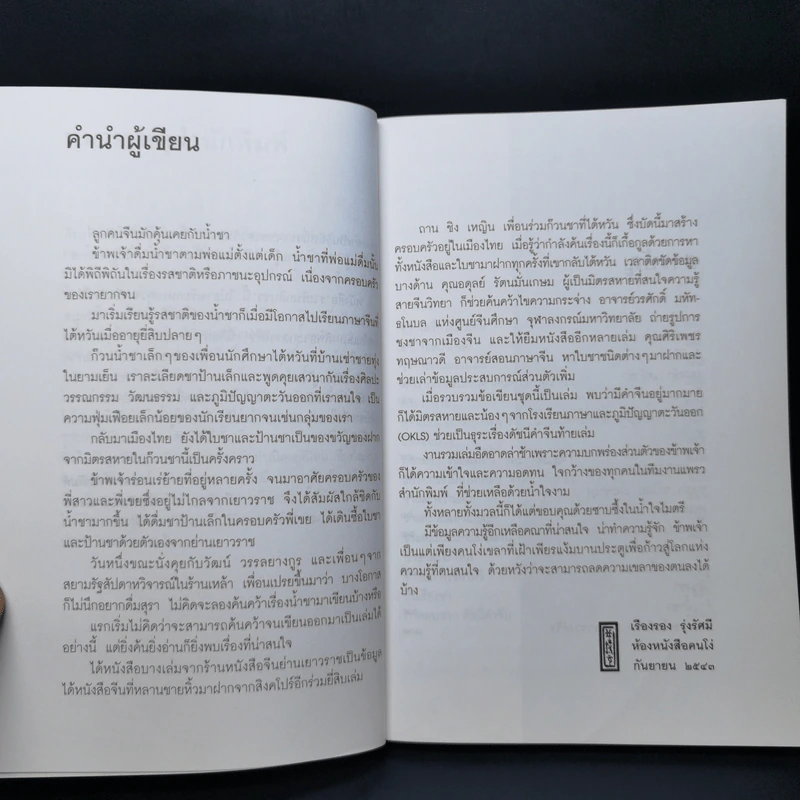 คำนำผู้เขียน
ลูกคนจีนมักคุ้นเคยกับน้ำชา
ข้าพเจ้าดื่มน้ำชาตามพ่อแม่ตั้งแต่เด็ก น้ำชาที่พ่อแม่ดื่มนั้น
มิได้พิถีพิถันในเรื่องรสชาติหรือภาชนะอุปกรณ์ เนื่องจากครอบครัว
ของเรายากจน
มาเริ่มเรียนรู้รสชาติของน้ำชาก็เมื่อมีโอกาสไปเรียนภาษาจีนที่
ไต้หวันเมื่ออายุยี่สิบปลายๆ
ก๊วนน้ำชาเล็กๆของเพื่อนนักศึกษาไต้หวันที่บ้านเช่าชายทุ่ง
ในยามเย็น เราละเลียดชาป้านเล็กและพูดคุยเสวนากันเรื่องศิลปะ
วรรณกรรม วัฒนธรรม และภูมิปัญญาตะวันออกที่เราสนใจ เป็น
ความฟุ่มเฟือยเล็กน้อยของนักเรียนยากจนเช่นกลุ่มของเรา
กลับมาเมืองไทย ยังได้ใบชาและป้านชาเป็นของขวัญของฝาก
จากมิตรสหายในก๊วนชานี้เป็นครั้งคราว
ข้าพเจ้าร่อนเร่ย้ายที่อยู่หลายครั้ง จนมาอาศัยครอบครัวของ
พี่สาวและพี่เขยซึ่งอยู่ไม่ไกลจากเยาวราช จึงได้สัมผัสใกล้ชิดกับ
น้ำชามากขึ้น ได้ดื่มชาป้านเล็กในครอบครัวพี่เขย ได้เดินซื้อใบชา
และป้านชาด้วยตัวเองจากย่านเยาวราช
วันหนึ่งขณะนั่งคุยกับวัฒน์ วรรลยางกูร และเพื่อนๆจาก
สยามรัฐสัปดาหวิจารณ์ในร้านเหล้า เพื่อนเปรยขึ้นมาว่า บางโอกาส
ก็ไม่นึกอยากดื่มสุรา ไม่คิดจะลองค้นคว้าเรื่องน้ำชามาเขียนบ้างหรือ
แรกเริ่มไม่คิดว่าจะสามารถค้นคว้าจนเขียนออกมาเป็นเล่มได้
อย่างนี้ แต่ยิ่งค้นยิ่งอ่านก็ยิ่งพบเรื่องที่น่าสนใจ
ได้หนังสือบางเล่มจากร้านหนังสือจีนย่านเยาวราชเป็นข้อมูล
ได้หนังสือจีนที่หลานชายหิ้วมาฝากจากสิงคโปร์อีกร่วมยี่สิบเล่ม
ถาน ชิง เหญิน เพื่อนร่วมก๊วนชาที่ไต้หวัน ซึ่งบัดนี้มาสร้าง
ครอบครัวอยู่ในเมืองไทย เมื่อรู้ว่ากำลังค้นเรื่องนี้ก็เกื้อกูลด้วยการหา
ทั้งหนังสือและใบชามาฝากทุกครั้งที่เขากลับไต้หวัน เวลาติดขัดข้อมูล
บางด้าน คุณอดุลย์ รัตนมั่นเกษม ผู้เป็นมิตรสหายที่สนใจความรู้
สายจีนวิทยา ก็ช่วยค้นคว้าไขความกระจ่าง อาจารย์วรศักดิ์ มหัท-
ธโนบล แห่งศูนย์จีนศึกษา จุฬาลงกรณ์มหาวิทยาลัย ถ่ายรูปการ
ชงชาจากเมืองจีน และให้ยืมหนังสืออีกหลายเล่ม คุณศิริเพชร
ทฤษณาวดี อาจารย์สอนภาษาจีน หาใบชาชนิดต่างๆมาฝากและ
ช่วยเล่าข้อมูลประสบการณ์ส่วนตัวเพิ่ม
เมื่อรวบรวมข้อเขียนชุดนี้เป็นเล่ม พบว่ามีคำจีนอยู่มากมาย
ก็ได้มิตรสหายและน้องๆจากโรงเรียนภาษาและภูมิปัญญาตะวันออก
(OKLS) ช่วยเป็นธุระเรื่องดัชนีคำจีนท้ายเล่ม
งานรวมเล่มอืดอาดล่าช้าเพราะความบกพร่องส่วนตัวของข้าพเจ้า
ก็ได้ความเข้าใจและความอดทน ใจกว้างของทุกคนในทีมงานแพรว
สำนักพิมพ์ ที่ช่วยเหลือด้วยน้ำใจงาม
ทั้งหลายทั้งมวลนี้ก็ได้แต่ขอบคุณด้วยซาบซึ้งในน้ำใจไมตรี
มีข้อมูลความรู้อีกเหลือคณาที่น่าสนใจ น่าทำความรู้จัก ข้าพเจ้า
เป็นแต่เพียงคนโง่เขลาที่เฝ้าเพียรแง้มบานประตูเพื่อก้าวสู่โลกแห่ง
ความรู้ที่ตนสนใจ ด้วยหวังว่าจะสามารถลดความเขลาของตนลงได้
บ้าง
เรืองรอง รุ่งรัศมี
ห้องหนังสือคนโง่
กันยายน ๒๕๔๓